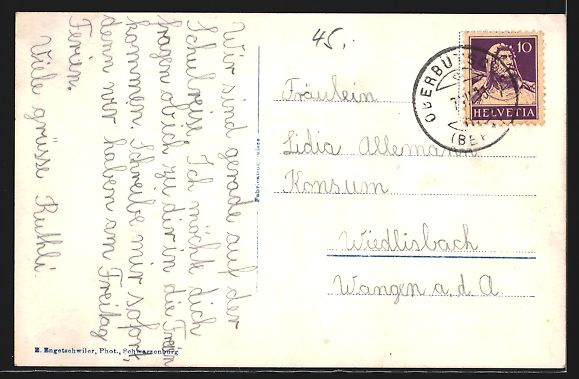 Wir sind gerade auf der
Schulreise. Ich möchte dich
fragen ob ich zu dir in die Ferien
kommen. Schreibe mir sofort
denn wir haben am Freitag
Ferien.
Viele grüsse Ruthli
45.
Fräulein
Lidia Allemann
Konsum
Wiedlisbach
Wangen a. d. A
10
HELVETIA
(BERN)
E. Engetschwiler, Phot., Schwarzenburg